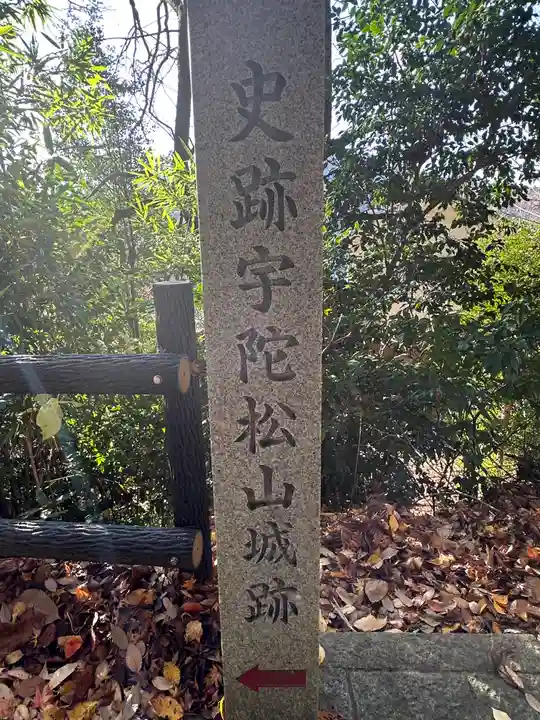 史跡宇陀松山城跡